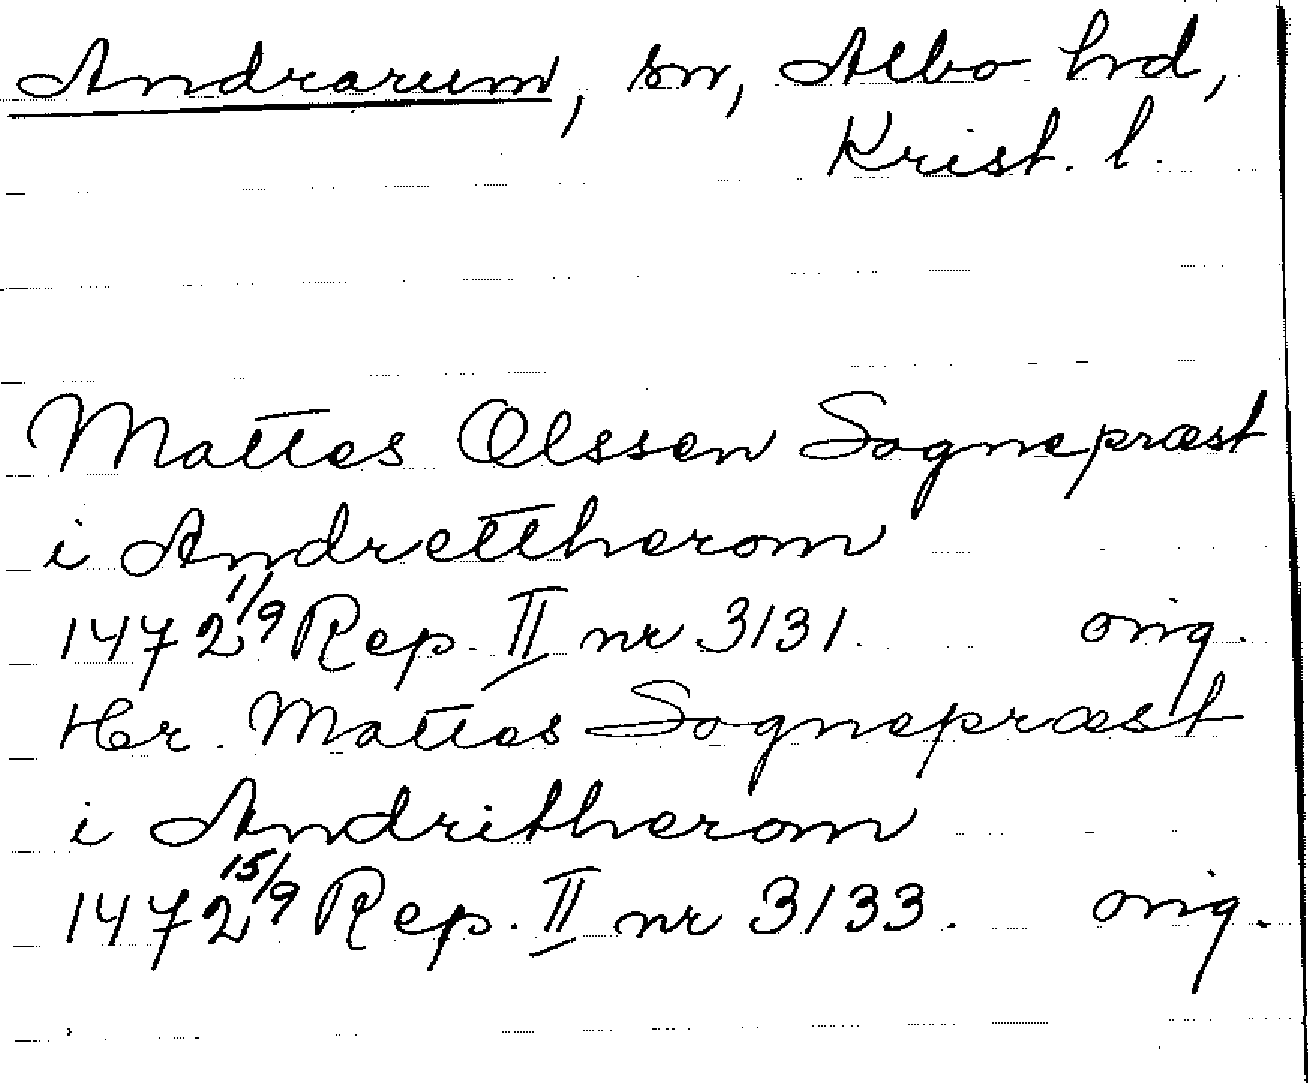 Andrarum, sn, Albo hrd,
Krist. l.
Mattes Olssen Sognepræst
i Andrettherom
1472 1/9 Rep. II nr 3131. orig.
Hr. Mattes Sognepræst
i Andritherom
1472 15/9 Rep. II nr 3133. orig.